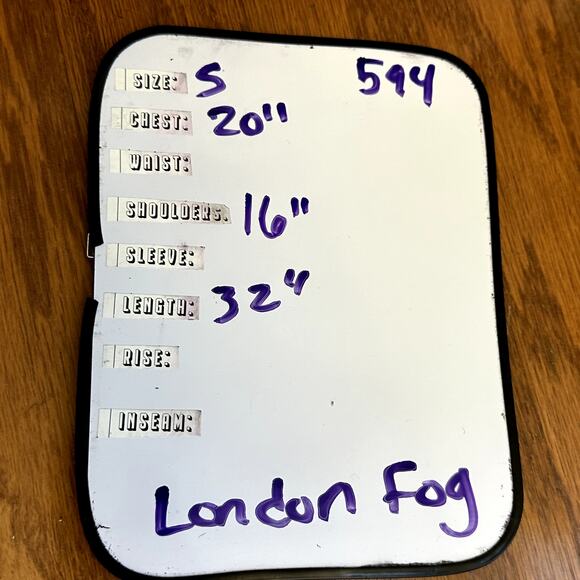 SIZE: S 594
CHEST: 20"
WAIST:
SHOULDERS: 16"
SLEEVE:
LENGTH: 32"
RISE:
INSEAM:
London Fog